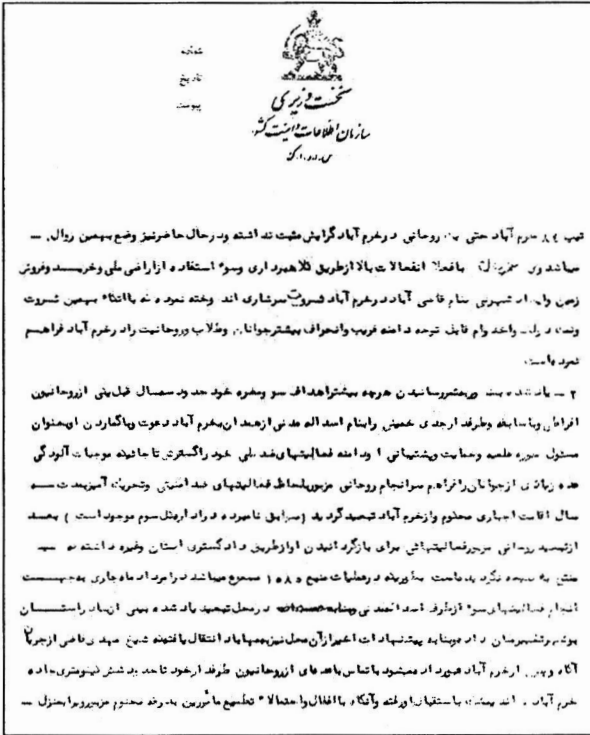 شماره
تاریخ
پیوست
نخست وزیری
سازمان اطلاعات و امنیت کشور
س.ا.و.ا.ک
تیپ خرم آباد حتی یک روحانی در خرم آباد گرایش مثبت نداشته و در حال حاضر نیز وضع بهمین روال
میباشد وی با فعل انفعالات بالا از طریق کلاهبرداری وسوء استفاده از اراضی ملی وخرید وفروش
زمین وایجاد شهرکی بنام قاضی آباد در خرم آباد ثروت سرشاری اند وخته نموده که با اتکاء بهمین ثروت
واخذ وام قابل توجه دامنه فریب وانحراف بیشتر جوانان وطلاب وروحانیت را در خرم آباد فراهم
نموده است
۲ ـ یاد شده بمنظور رسانیدن هرچه بیشتر اهداف سوء ومغرضه خود حدود سه سال قبل یکی از روحانیون
افراطی وباسابقه وطرفدار جدی خمینی را بنام اسداله مدنی از همدان بخرم آباد دعوت وباگماردن او بعنوان
مسئول حوزه علمیه وحمایت وپشتیبانی او دامنه فعالیتهای ضد ملی خود را گسترش تا جائیکه موجبات آلودگی
عده زیادی از جوانان را فراهم سرانجام روحانی مزبور بلحاظ فعالیتهای ضد امنیتی وتحریک آمیز بمدت سه
سال اقامت اجباری محکوم واز خرم آباد تبعید گردید (سوابق نامبرده در اداره کل سوم موجود است) بعد
از تبعید روحانی مزبور فعالیتهائی برای بازگردانیدن او از طریق دادگستری استان وغیره داشته که
منتج به نتیجه نگردیده است بطوریکه در عملیات منبع ۱۰۸۵ مصرح میباشد در مرداد ماه جاری بجهت
انجام فعالیتهای سوء از طرف اسداله مدنی در محل تبعید یاد شده یعنی
بوشهر وشهرستان بنا به پیشنهادات اخیر از آن محل نیز بمهاباد انتقال یافته که شیخ مهدی قاضی از جریان
آگاه وعبور او از خرم آباد میشود با تماس با عده ای از روحانیون طرفدار خود تا حدود شش کیلومتری جاده
خرم آباد باستقبال او رفته وآنگاه با اغفال واحتمالاً تطمیع مأمورین بدرقه محکوم مزبور ویرا بمنزل